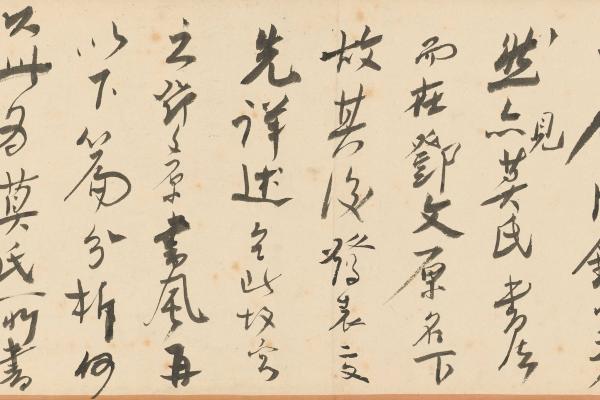 然亦見莫氏書法
而在鄧文原名下
故其後發表文
先詳述此故宮
之鄧文原書風再
以下篇分析何
以此為莫氏所書